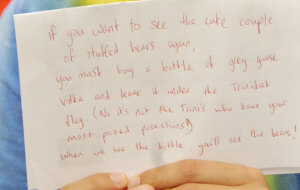 if you want to see the cute couple
of stuffed bears again,
you must buy a bottle of grey goose
Vdka and leave it under the Trinidad
flag (No its not the Trini's who have your
most prized posessions!)
When we see the bottle, you'll see the bears!